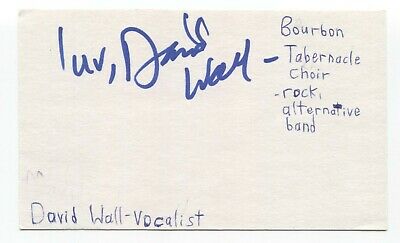 luv, David
Wall -
Bourbon
Tabernacle
Choir
-rock,
alternative
band
David Wall-Vocalist